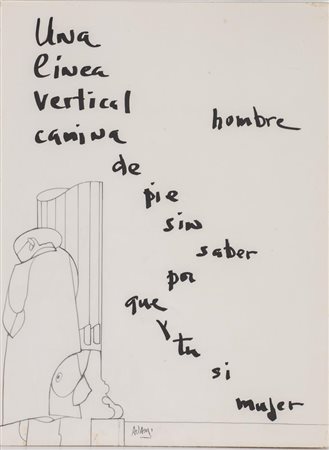 Una
linea
vertical
camina hombre
de
pie
sin
saber
por
que
y
tu
si
mujer
ADAMI